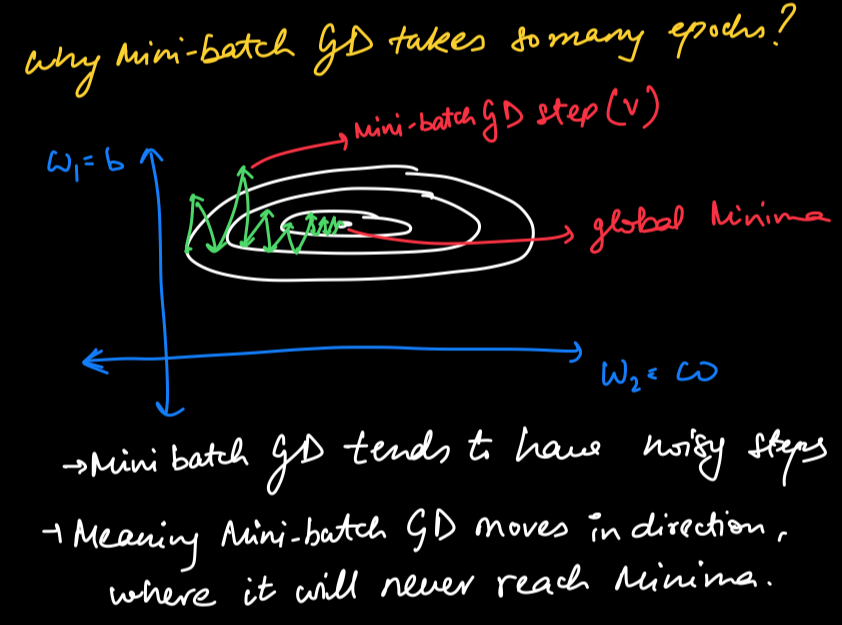 Why Mini-batch GD takes so many epochs?
Mini-batch GD step (v)
W₁ = b
global Minima
W₂ = ω
→ Mini batch GD tends to have noisy steps
→ Meaning Mini-batch GD moves in direction,
where it will never reach Minima.